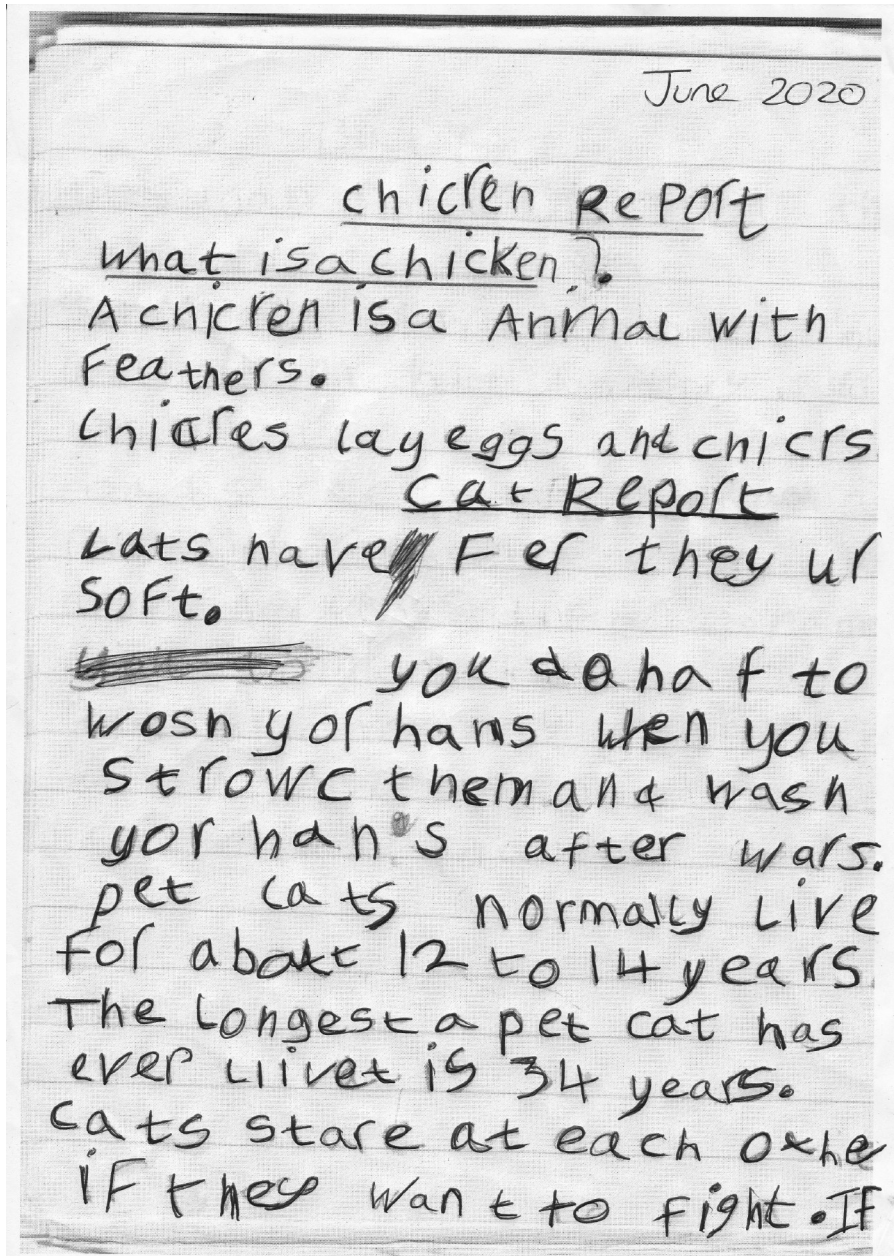 June 2020
chicren RePort
what is a chicken ?
A chicren is a Animal with
Feathers.
Chicres lay eggs and chicrs
Cat Report
Cats have F er they ur
SoFt.
you do haf to
wosh yor hans when you
strowc them and wash
yor han's after wars.
pet cats normally Live
for aboutt 12 to 14 years
The Longest a pet cat has
ever Liivet is 34 years.
Cats stare at each othe
iF they want to fight. If